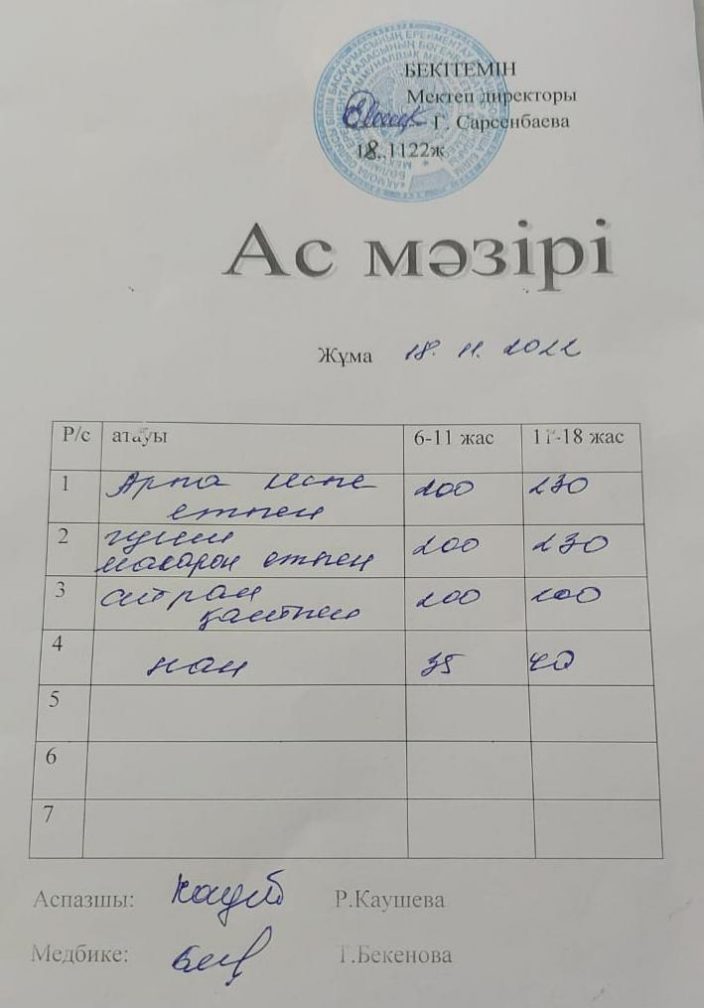 БЕКІТЕМІН
Мектеп директоры
Г. Сарсенбаева
18.1122ж
Ас мәзірі
Жұма 18. 11. 2022
Р/с атауы 6-11 жас 11-18 жас
1 Арпа көспе 200 230
етпен
2 гуляш 200 230
макарон етпен
3 200 200
4 нан 35 40
5
6
7
Аспазшы: Р.Каушева
Медбике: Т.Бекенова